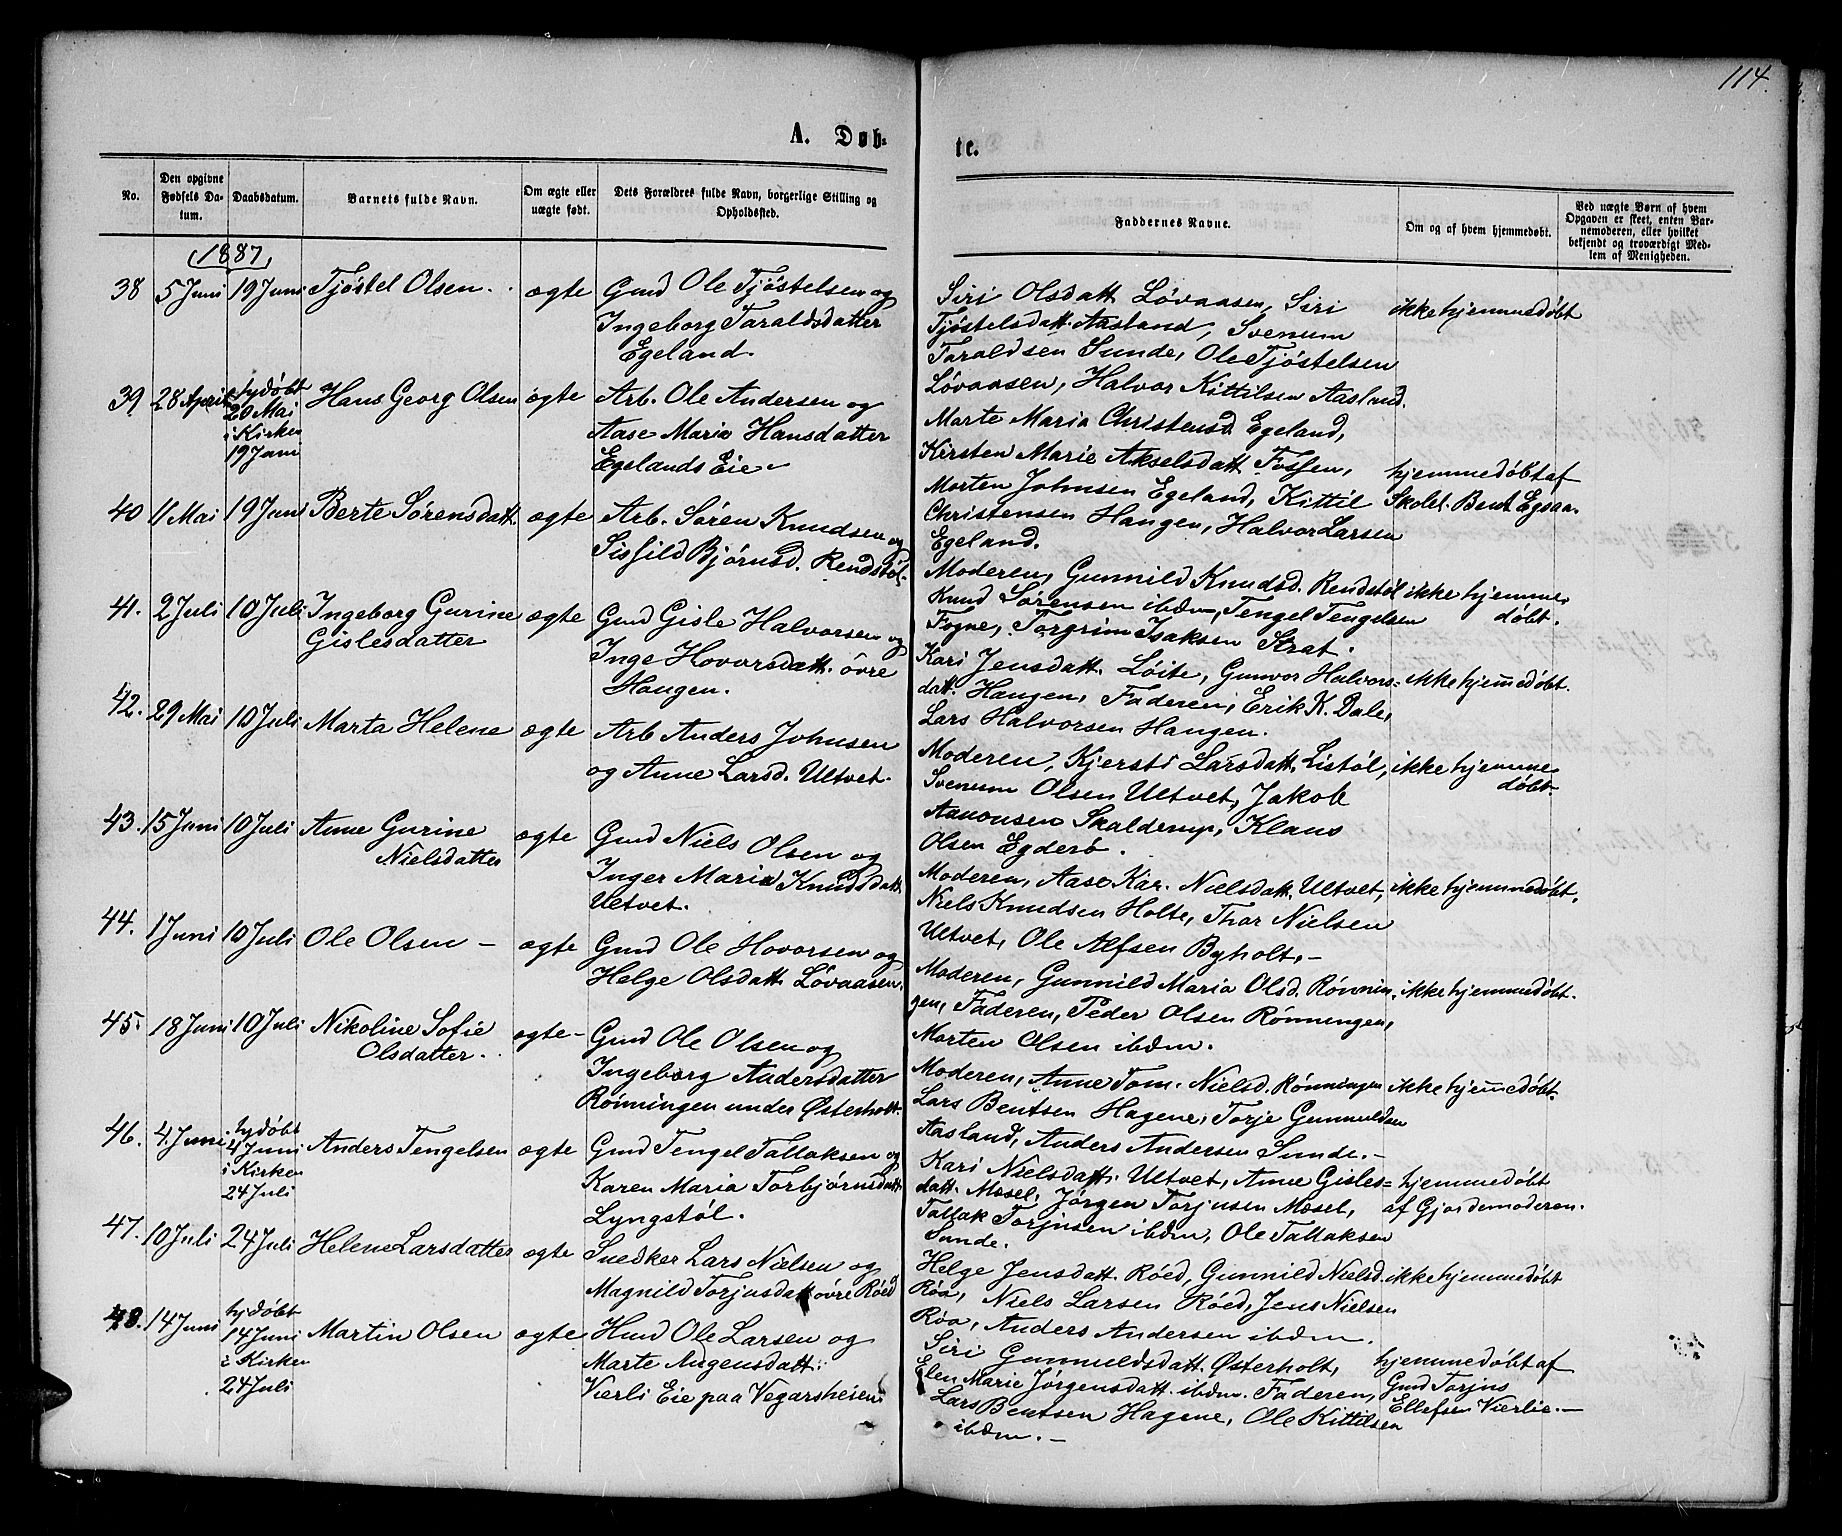 114.
A. Døb-
te.
No.
Den opgivne Fødsels Datum.
Daabsdatum.
Barnets fulde Navn.
Om ægte eller uægte født.
Dets Forældres fulde Navn, borgerlige Stilling og Opholdssted.
Faddernes Navne.
Om og af hvem hjemmedøbt.
Ved uægte Børn af hvem Opgaven er skeet, enten Barnemoderen, eller hvilket bekjendt og troværdigt Medlem af Menigheden.
1887
38 5 Juni 19 Juni Tjøstel Olsen. ægte Gmd Ole Tjøstelsen og
Ingeborg Taraldsdatter
Egeland.
39 28 April hjdøbt Hans Georg Olsen ægte Arb. Ole Andersen og
20 Mai
i Kirken
19 Juni
Aase Maria Hansdatter
Egelands Eie
40 11 Mai 19 Juni Berte Sørensdatt. ægte Arb. Søren Knudsen og
Sisfild Bjørnsd. Rendstøl.
41. 2 Juli 10 Juli Ingeborg Gurine ægte Gmd Gisle Halvorsen og
Gislesdatter
Inge Hovorsdatt. øvre
Haugen.
42. 29 Mai 10 Juli Marta Helene ægte Arb Anders Johnsen
og Anne Larsd. Ultvet.
43. 15 Juni 10 Juli Anne Gurine ægte Gmd Niels Olsen og
Nielsdatter
Inger Maria Knudsdatt.
Ultvet.
44. 1 Juni 10 Juli Ole Olsen – ægte Gmd Ole Hovorsen og
Helge Olsdatt. Løvaasen.
45. 18 Juni 10 Juli Nikoline Sofie ægte – Gmd Ole Olsen og
Olsdatter.
Ingeborg Andersdatter
Rønningen under Østerholt.
46. 4. Juni hjdøbt Anders Tengelsen ægte Gmd Tengel Tallaksen og
4 Juni
i Kirken
24 Juli
Karen Maria Torbjørnsdatt.
Lyngstøl.
47. 10 Juli 24 Juli Helene Larsdatter ægte Snedker Lars Nielsen og
Magnild Torjusdatt øvre Røed
48. 14 Juni hjdøbt Martin Olsen ægte Hmd Ole Larsen og
14 Juni
i Kirken
24 Juli
Marte Augensdatt.
Værli Eie paa Vegarsheien
Siri Olsdatt Løvaasen, Siri ikke hjemmedøbt
Tjøstelsdatt. Aasland, Svenum
Taraldsen Sunde, Ole Tjøstelsen
Løvaasen, Halvor Kittilsen Aasland.
Marte Maria Christensd. Egeland,
Kirsten Marie Akselsdatt. Fossen, hjemmedøbt af
Morten Johnsen Egeland, Kittil Skolel. Bent
Christensen Haugen, Halvor Larsen
Egeland.
Moderen, Gunnild Knudsd. Rendstøl ikke hjemme
Knud Sørensen ibdm, Tengel Tengelsen døbt.
Fogne, Torgrim Isaksen Strat.
Kari Jensdatt. Løite, Gunvor Halvors= ikke hjemedøbt.
datt. Haugen, Faderen, Erik K. Dale,
Lars Halvorsen Haugen.
Moderen, Kjersti Larsdatt. Listøl, ikke hjemme
Svenum Olsen Ultvet, Jakob døbt.
Aanonsen Skalderup, Klaus
Olsen Egderø.
Moderen, Aase Kar. Nielsdatt. Ultvet, ikke hjemmedøbt.
Niels Knudsen Holte, Thor Nielsen
Ultvet, Ole Alfsen Byholt. –
Moderen, Gunnild Maria Olsd. Rønnin ikke hjemmedøbt.
gen, Faderen, Peder Olsen Rønningen,
Morten Olsen ibdm.
Moderen, Anne Tom. Nielsd. Rønningen ikke hjemedøbt.
Lars Bentsen Hagene, Torje Gunmulden
Aasland, Anders Andersen Sunde. –
Kari Nielsdatt. Ultvet, Anne Gisles= hjemmedøbt
datt. Mosel, Jørgen Torjusen Mosel, af Gjordemoderen.
Tallak Torjusen ibdm, Ole Tallaksen
Sunde.
Helge Jensdatt. Røed, Gunnild Nielsd. ikke hjemmedøbt
Røa, Niels Larsen Røed, Jens Nielsen
Røa, Anders Andersen ibdm.
Siri Gunmuldsdatt. Østerholt, hjemmedøbt af
Elen Marie Jørgensdatt. ibdm. Faderen, Gmd Torjus
Lars Bentsen Hagene, Ole Kittilsen Ellefsen Værlie. –
ibdm. –